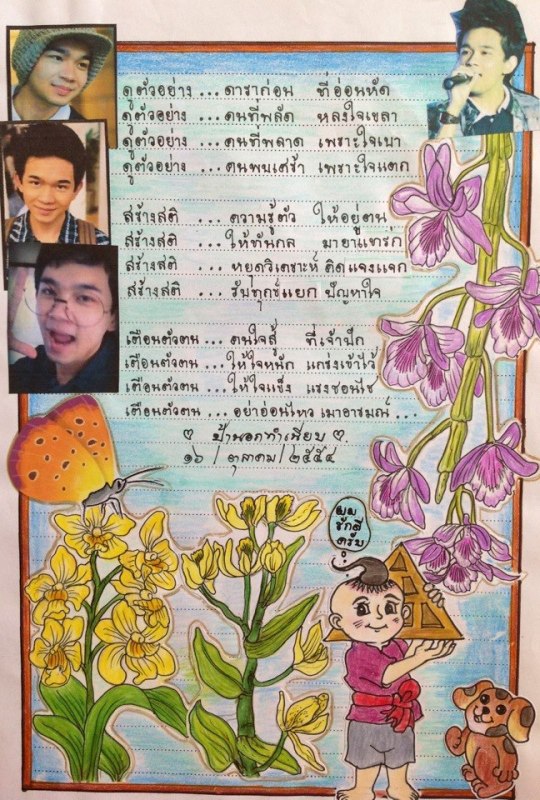 ดูตัวอย่าง ... ดาราก่อน ที่อ่อนหัด
ดูตัวอย่าง ... คนที่พลัด หลงใจเขลา
ดูตัวอย่าง ... คนที่พลาด เพราะใจเบา
ดูตัวอย่าง ... คนพบเศร้า เพราะใจแตก
สร้างสติ ... ความรู้ตัว ให้อยู่ตน
สร้างสติ ... ให้ทันกล มายาแทรก
สร้างสติ ... หยุดวิเคราะห์ คิดแจงแจก
สร้างสติ ... รับทุกข์แยก ปัญหาใจ
เตือนตัวตน ... คนใจสู้ ที่เจ้าฝึก
เตือนตัวตน ... ให้ใจหนัก แกร่งเข้าไว้
เตือนตัวตน ... ให้ใจแข็ง แรงชอนไช
เตือนตัวตน ... อย่าอ่อนไหว เมาอารมณ์ ...
ป้านอกทำเนียบ
๑๖ / ตุลาคม / ๒๕๕๔
ผม
รักดี
ครับ